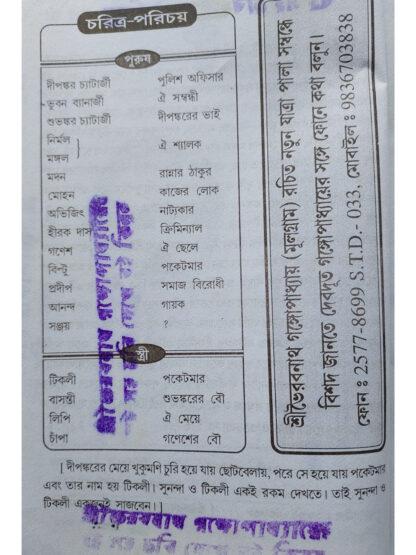 চরিত্র-পরিচয়
পুরুষ
দীপঙ্কর চ্যাটার্জী পুলিশ অফিসার
ভুবন ব্যানার্জী ঐ সম্বন্ধী
শুভঙ্কর চ্যাটার্জী দীপঙ্করের ভাই
নির্মল
মঙ্গল } ঐ শ্যালক
মদন রান্নার ঠাকুর
মোহন কাজের লোক
অভিজিৎ নাট্যকার
হীরক দাস ক্রিমিন্যাল
গণেশ ঐ ছেলে
বিল্টু পকেটমার
প্রদীপ সমাজ বিরোধী
আনন্দ গায়ক
সঞ্জয় ?
স্ত্রী
টিকলী পকেটমার
বাসন্তী শুভঙ্করের বৌ
লিপি ঐ মেয়ে
চাঁপা গণেশের বৌ
[ দীপঙ্করের মেয়ে খুকুমণি চুরি হয়ে যায় ছোটবেলায়, পরে সে হয়ে যায় পকেটমার
এবং তার নাম হয় টিকলী। সুনন্দা ও টিকলী একই রকম দেখতে। তাই সুনন্দা ও
টিকলী একজনই সাজবেন। ]
শ্রীভৈরবনাথ গঙ্গোপাধ্যায় (মূলগ্রাম) রচিত নতুন যাত্রা পালা সম্বন্ধে
বিশদ জানতে দেবদূত গঙ্গোপাধ্যায়ের সঙ্গে ফোনে কথা বলুন।
ফোন ঃ 2577-8699 S.T.D.- 033, মোবাইল ঃ 9836703838
শ্রীভৈরবনাথ গঙ্গোপাধ্যায়ের
শ্রীভৈরবনাথ গঙ্গোপাধ্যায়ের